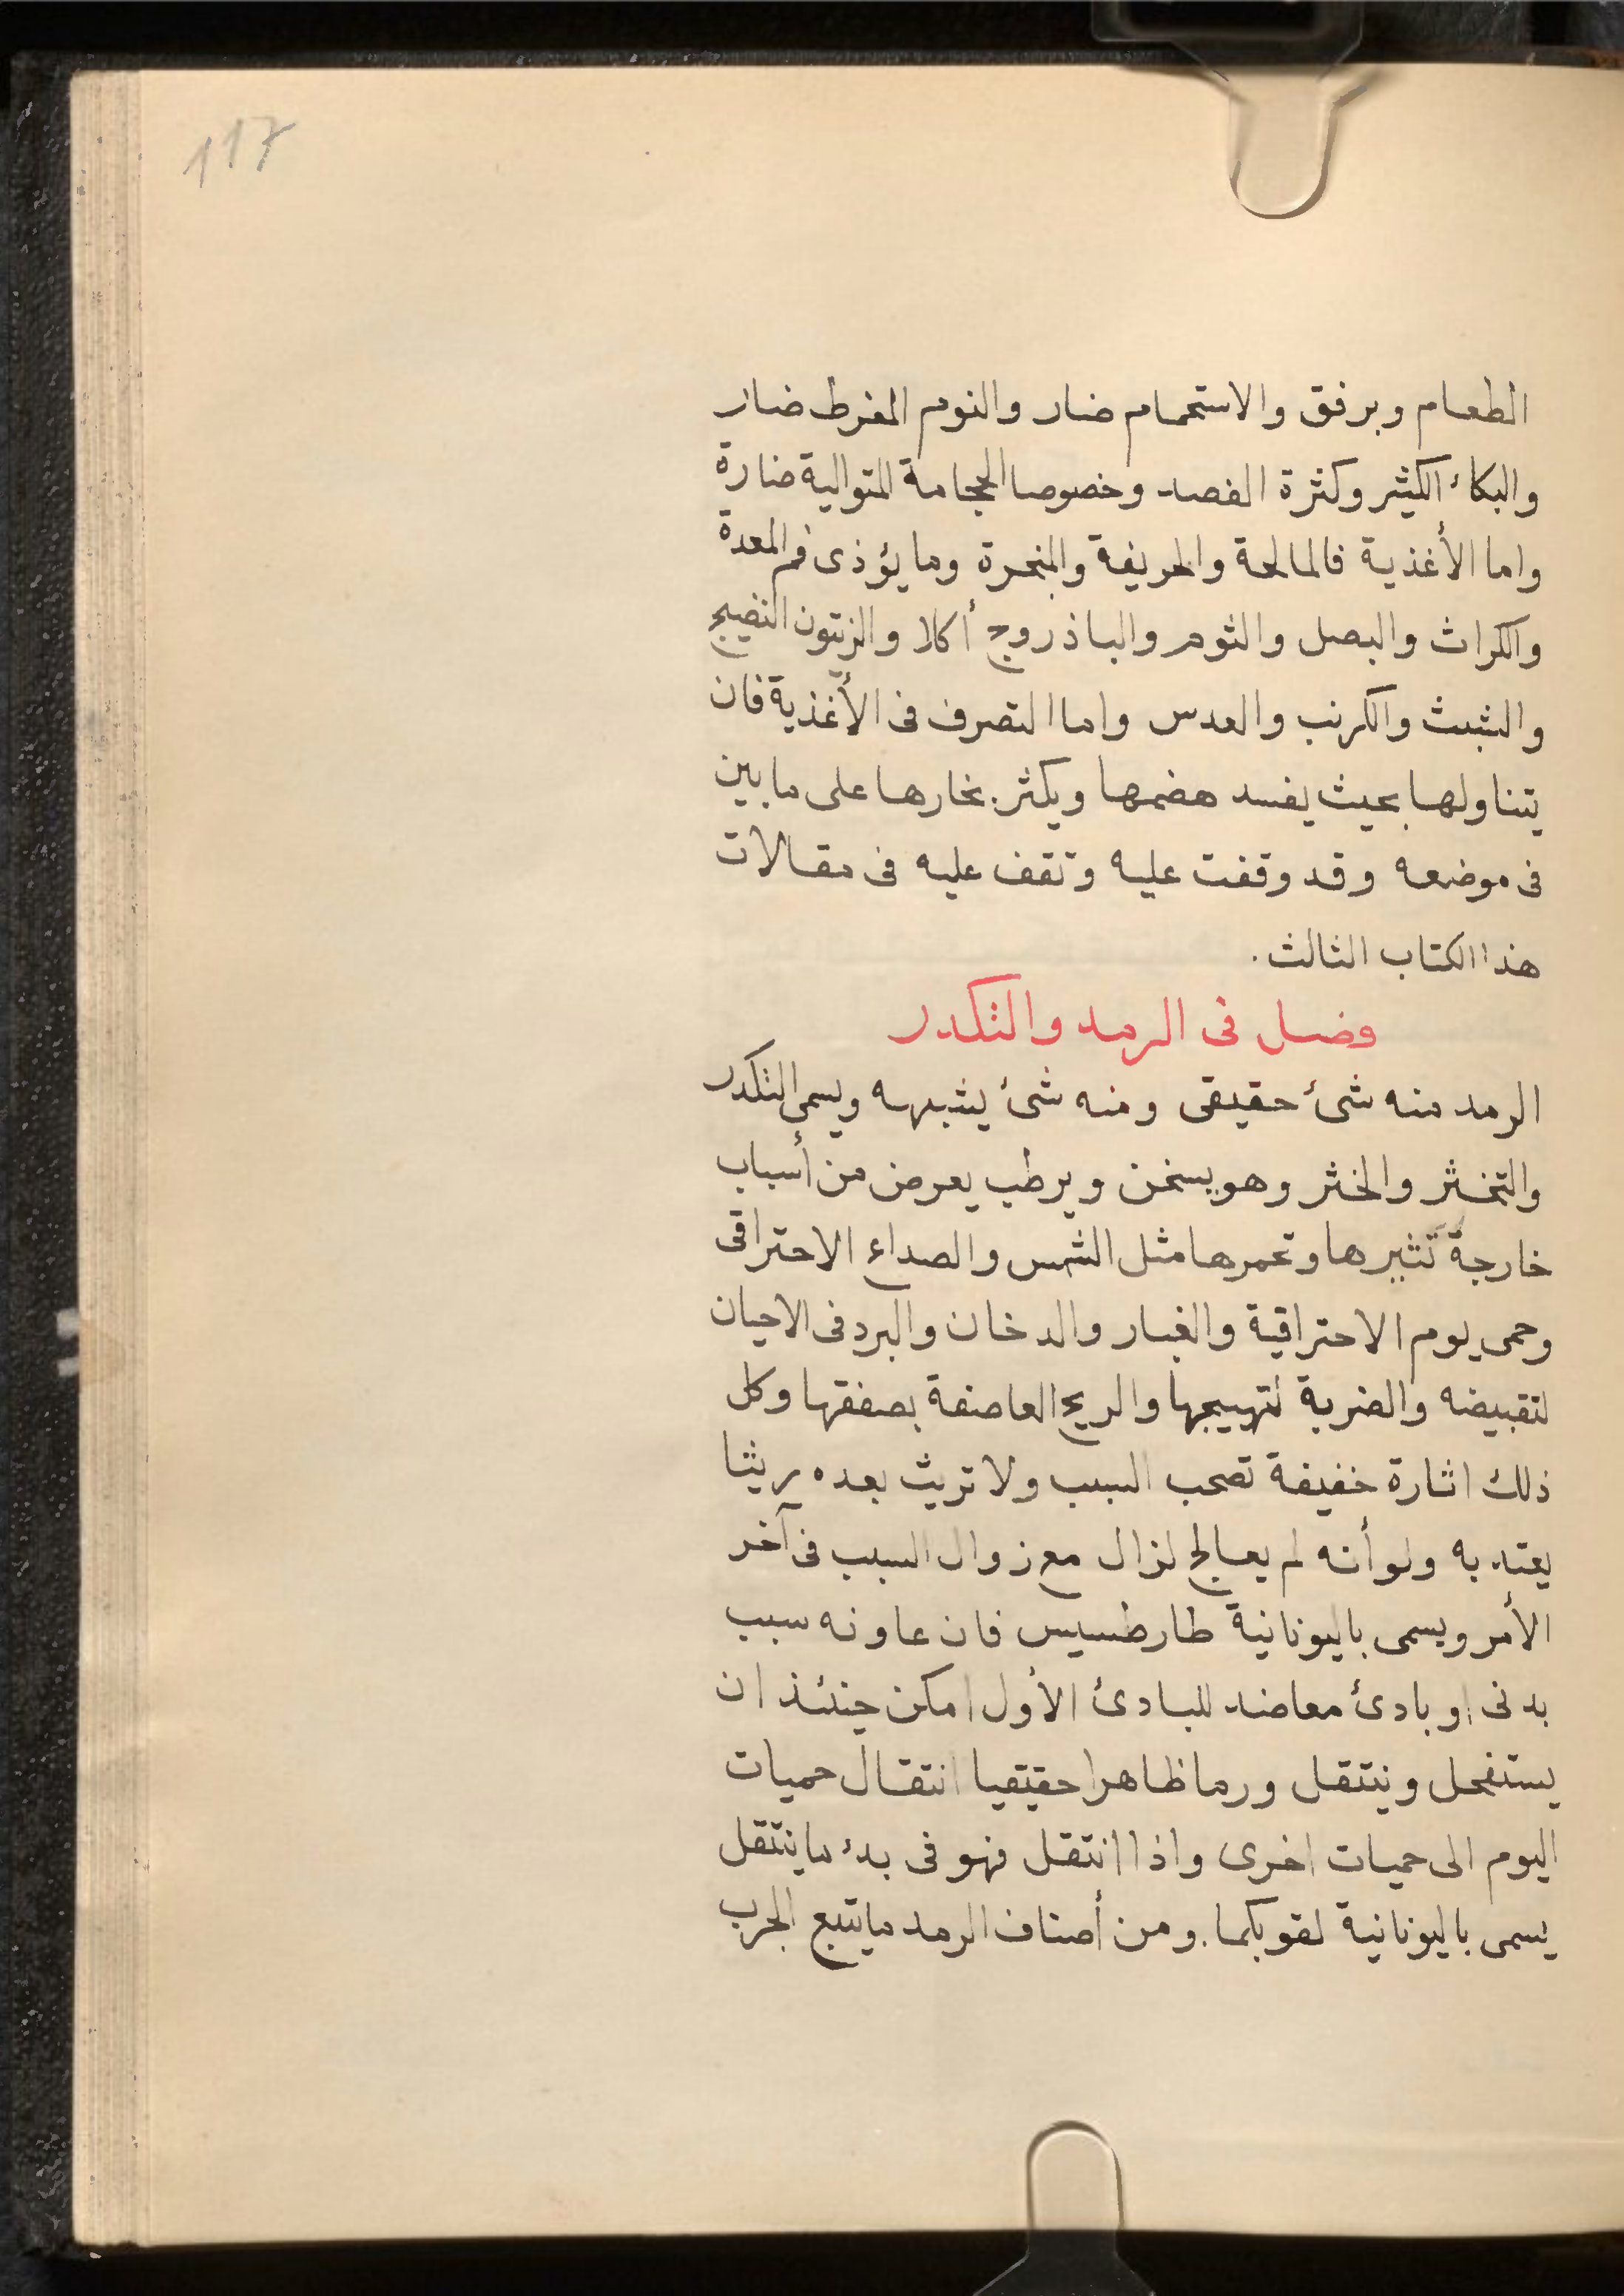 117
الطعام وبرفق والاستحمام ضار والنوم المفرط ضار
والبكائ الكثير وكثرة الفصد وخصوصا الحجامة المتوالية ضارة
واما الأغذية فالمالحة والحريفة والمبخرة وما يؤذى فم المعدة
والكراث والبصل والثوم والباذروج أكلا والزيتون النضيج
والشبث والكرنب والعدس واما التصرف فى الأغذية فان
يتناولها بحيث يفسد هضمها ويكثر بخارها على ما بين
فى موضعه وقد وقفت عليه وتقف عليه فى مقالات
هذا الكتاب الثالث.
فصل فى الرمد والتكدر
الرمد منه شئ حقيقى ومنه شئ يشبهه ويسمى التكدر
والتخثر والخثر وهو يسخن ويرطب يعرض من أسباب
خارجة تثيرها وتحمرها مثل الشمس والصداع الاحتراقى
وحمى يوم الاحتراقية والغبار والدخان والبرد فى الاحيان
لتقبيضه والضربة لتهييجها والريح العاصفة بصفقها وكل
ذلك اثارة خفيفة تصحب السبب ولا تريث بعده ريثا
يعتد به ولو أنه لم يعالج لزال مع زوال السبب فى آخر
الأمر ويسمى باليونانية طارطسيس فان عاونه سبب
بدنى او بادئ معاضد للبادئ الأول امكن حينئذ ان
يستفحل وينتقل ورما ظاهرا حقيقيا انتقال حميات
اليوم الى حميات اخرى واذا انتقل فهو فى بدء ما ينتقل
يسمى باليونانية لقويكما. ومن أصناف الرمد ما يتبع الجرب